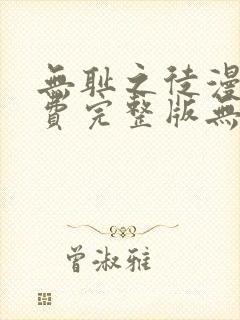 無耻之徒漫
費完整版無
曾淑雅